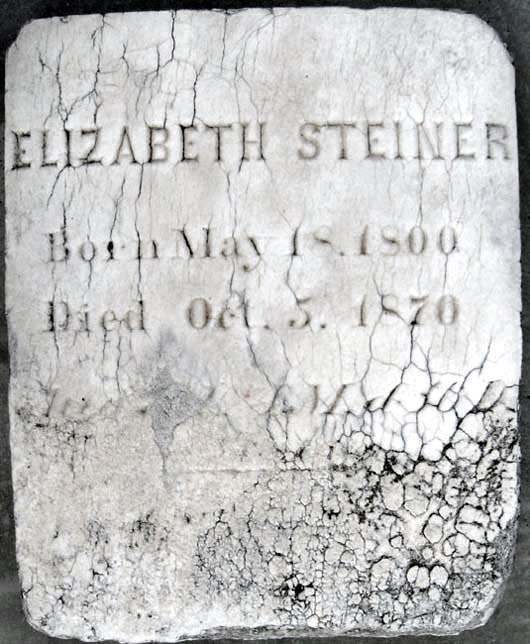 ELIZABETH STEINER
Born May 18. 1800
Died Oct. 5. 1870